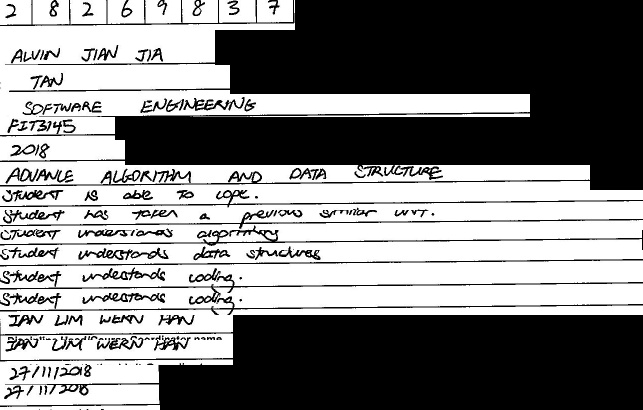 2 8 2 6 9 8 3 7
ALVIN JIAN JIA
TAN
SOFTWARE ENGINEERING
FIT3145
2018
ADVANCE ALGORITHM AND DATA STRUCTURE
Student is able to cope.
Student has taken a previous similar unit.
Student understands algorithms
Student understands data structures
Student understands coding.
Student understands coding.
IAN LIM WERN HAN
IAN LIM WERN HAN
27/11/2018
27/11/2018